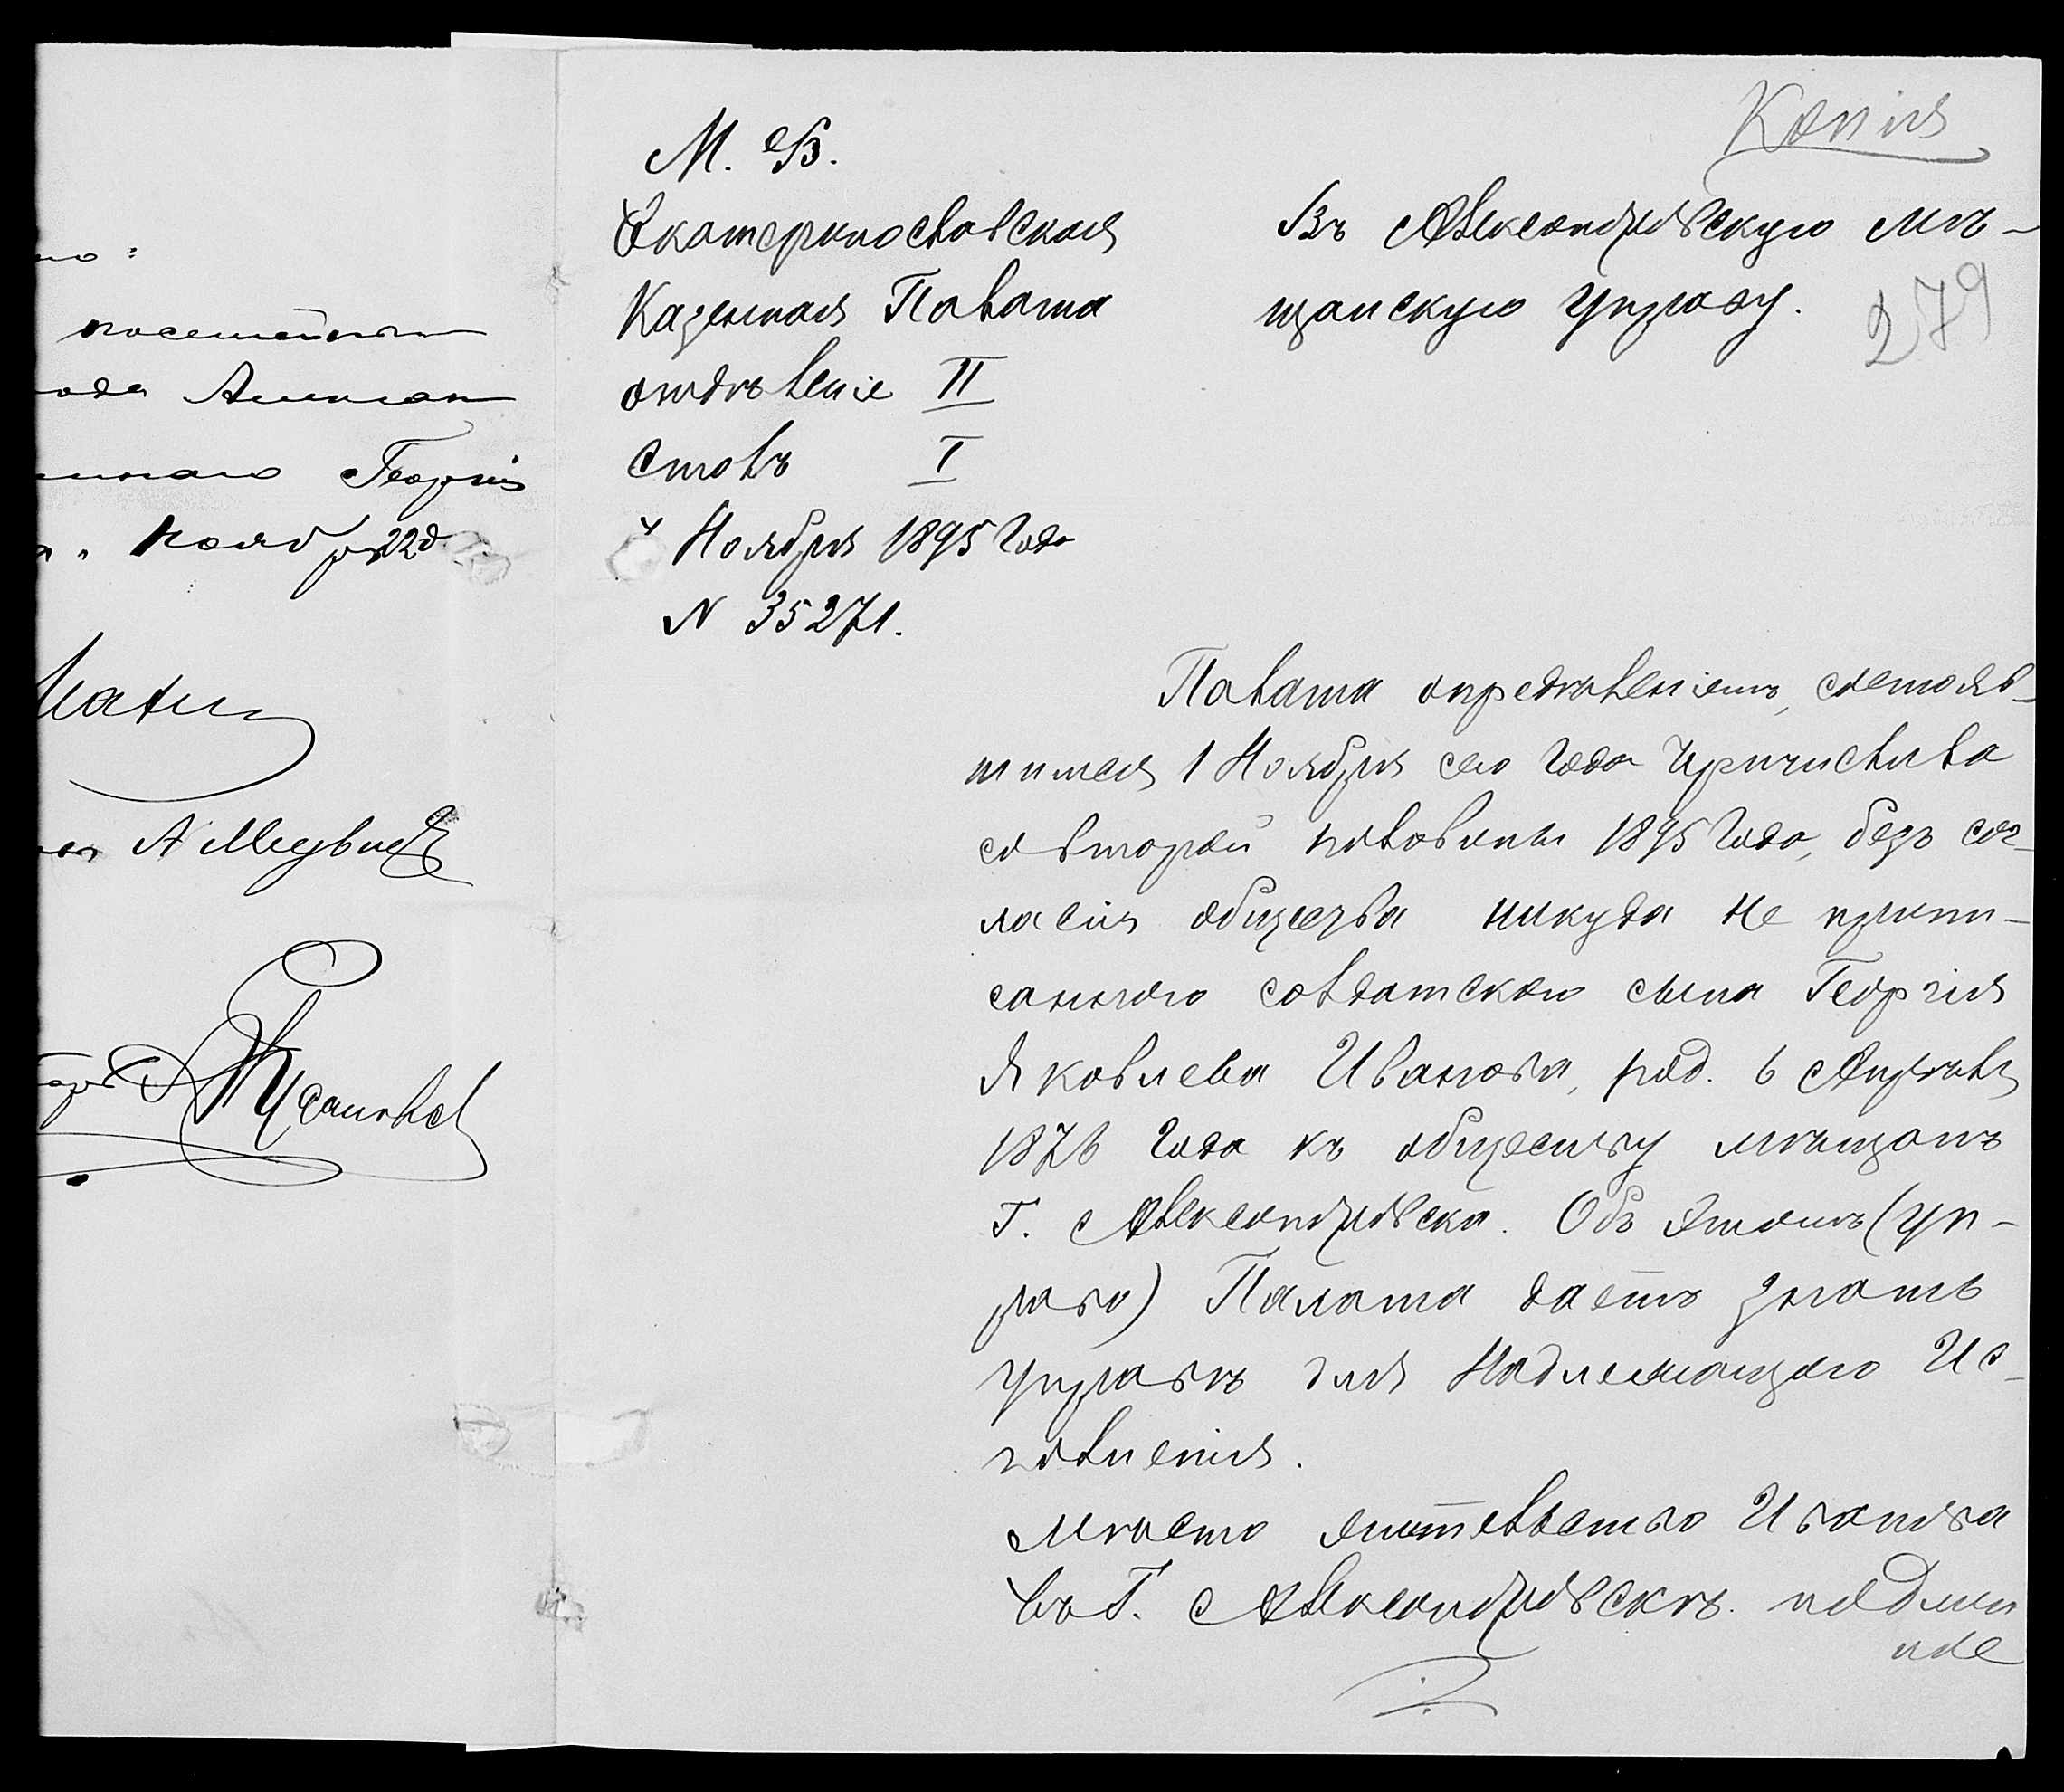 но:
посемейным
ода Алексан
иннаго Георгій
нояб 22 д
А Медвед
Копія
М. В.
Екатеринославская
Казенная Палата
отдѣленіе II
столъ I
4 Ноября 1895 года
N 35271.
Въ Александровскую мѣ-
щанскую управу.
279
Палата опредѣленіемъ, состояв-
шимся 1 Ноября сего года причислила
со второй половины 1895 года, безъ сог-
ласія общества никуда не припи-
саннаго солдатскаго сына Георгія
Яковлева Иванова, род. 6 Апрѣля
1876 года къ обществу мѣщанъ
г. Александровска. Объ этомъ (уп-
раво) Палата даетъ знать
Управѣ для надлежащаго ис-
полненія.
Мѣсто жительство Иванова
въ г. Александровскѣ. подлин
ное